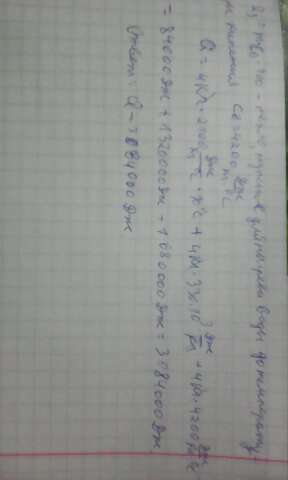 Q₃ = mc₀ · 100 - нужное для нагрева воды до температу-
ры кипения Cв=4200 Дж/кг°C
Q = 4кг · 2100 Дж/кг°C · 10°C + 4кг · 330·10³ Дж/кг + 4кг · 4200 Дж/кг°C
= 84000 Дж + 1320000 Дж + 1680000 Дж = 3084000 Дж
Ответ: Q = 3084000 Дж